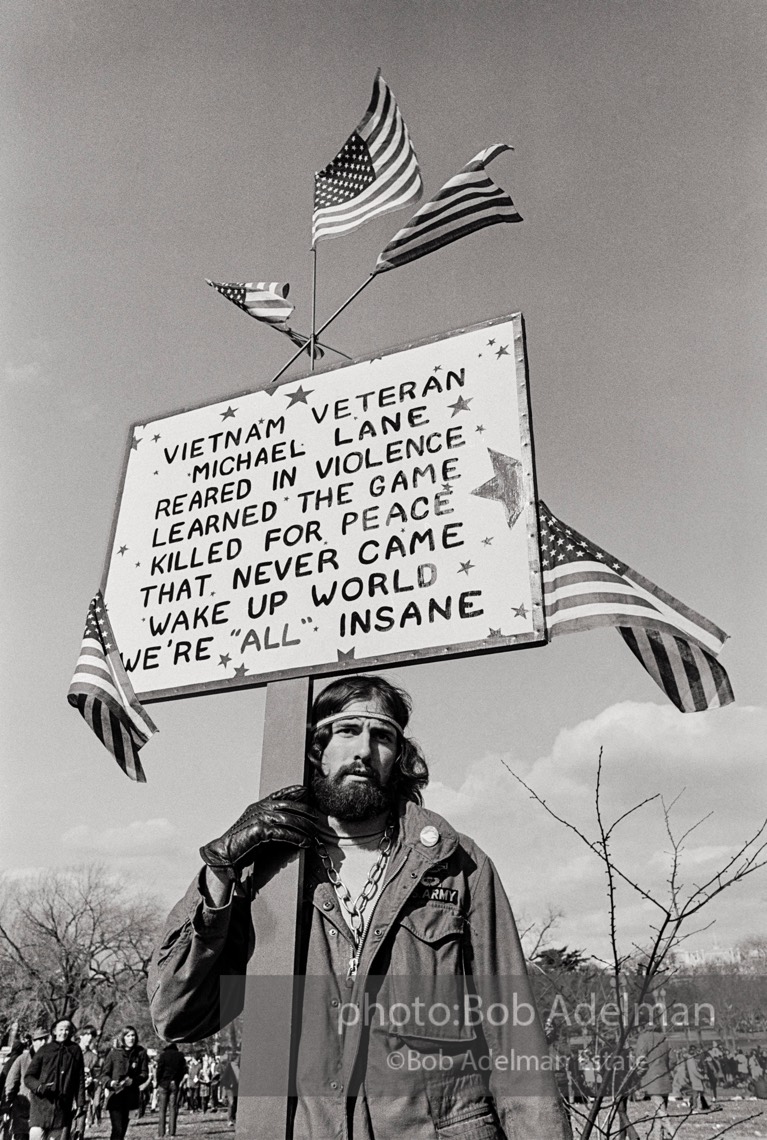 VIETNAM VETERAN
MICHAEL LANE
REARED IN VIOLENCE
LEARNED THE GAME
KILLED FOR PEACE
THAT NEVER CAME
WAKE UP WORLD
WE'RE "ALL" INSANE
ARMY
photo:Bob Adelman
©Bob Adelman Estate